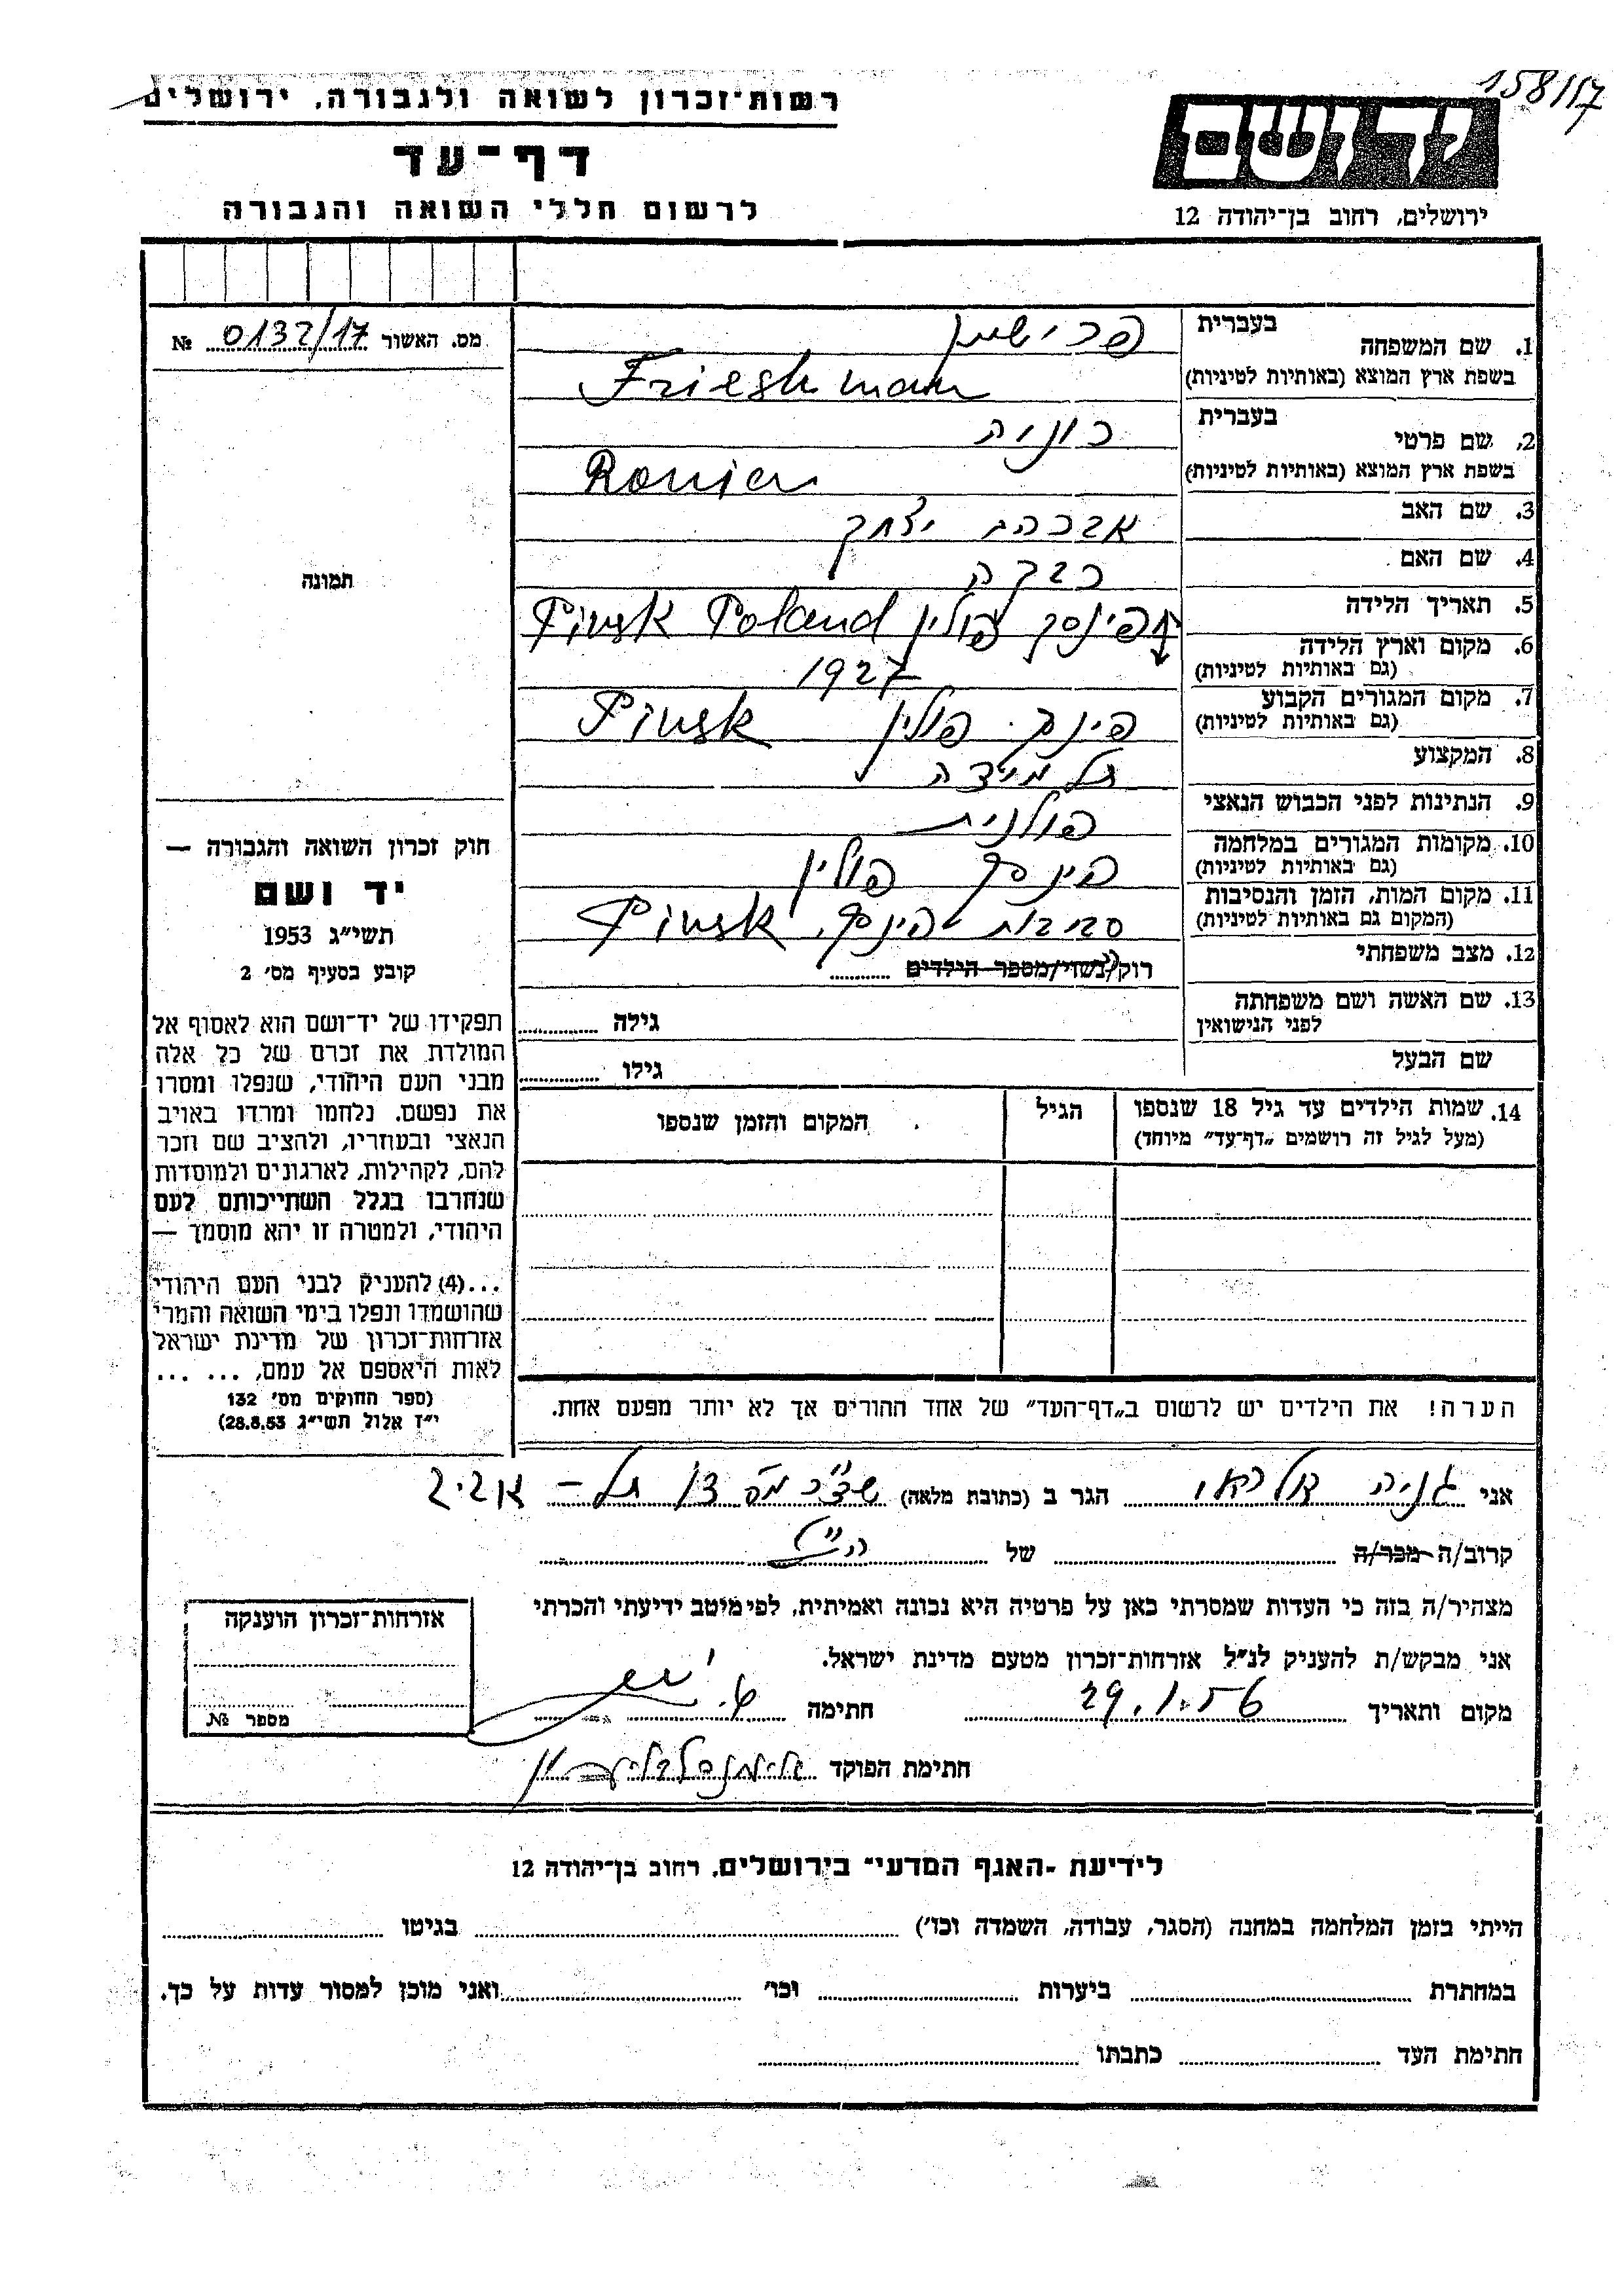 158/17
רשות-זכרון לשואה ולגבורה, ירושלים
דף-עד
לרשום חללי השואה והגבורה
יד ושם
ירושלים, רחוב בן-יהודה 12
מס. האשור 0132/17 №
תמונה
חוק זכרון השואה והגבורה —
יד ושם
תשי״ג 1953
קובע בסעיף מס׳ 2
תפקידו של יד-ושם הוא לאסוף אל
המולדת את זכרם של כל אלה
מבני העם היהודי, שנפלו ומסרו
את נפשם, נלחמו ומרדו באויב
הנאצי ובעוזריו, ולהציב שם וזכר
להם, לקהילות, לארגונים ולמוסדות
שנחרבו בגלל השתייכותם לעם
היהודי, ולמטרה זו יהא מוסמך —
...(4) להעניק לבני העם היהודי
שהושמדו ונפלו בימי השואה והמרי
אזרחות-זכרון של מדינת ישראל
לאות היאספם אל עמם, ... ...
(ספר החוקים מס׳ 132
י״ז אלול תשי״ג 28.8.53)
1. שם המשפחה בעברית
בשפת ארץ המוצא (באותיות לטיניות) Frieshman
2. שם פרטי בעברית רוניה
בשפת ארץ המוצא (באותיות לטיניות) Ronia
3. שם האב אברהם יצחק
4. שם האם רבקה
5. תאריך הלידה פינסק פולין Pinsk Poland
6. מקום וארץ הלידה 1927
(גם באותיות לטיניות)
7. מקום המגורים הקבוע פינסק פולין Pinsk
(גם באותיות לטיניות)
8. המקצוע תלמידה
9. הנתינות לפני הכבוש הנאצי פולנית
10. מקומות המגורים במלחמה פינסק פולין
(גם באותיות לטיניות)
11. מקום המות, הזמן והנסיבות סביבות פינסק, Pinsk
(המקום גם באותיות לטיניות)
12. מצב משפחתי רוק/נשוי/מספר הילדים
13. שם האשה ושם משפחתה גילה
לפני הנישואין
שם הבעל גילו
14. שמות הילדים עד גיל 18 שנספו הגיל המקום והזמן שנספו
(מעל לגיל זה רושמים „דף-עד״ מיוחד)
הערה! את הילדים יש לרשום ב„דף-העד״ של אחד ההורים אך לא יותר מפעם אחת.
אני גניה הגר ב (כתובת מלאה) תל-אביב
קרוב/ה מכר/ה של הנ״ל
מצהיר/ה בזה כי העדות שמסרתי כאן על פרטיה היא נכונה ואמיתית, לפי מיטב ידיעתי והכרתי
אני מבקש/ת להעניק לנ״ל אזרחות-זכרון מטעם מדינת ישראל.
מקום ותאריך 29.1.56 חתימה
חתימת הפוקד
אזרחות-זכרון הוענקה
מספר №
לידיעת ״האגף המדעי״ בירושלים, רחוב בן-יהודה 12
הייתי בזמן המלחמה במחנה (הסגר, עבודה, השמדה וכו׳) בגיטו
במחתרת ביערות וכו׳ ואני מוכן למסור עדות על כך.
חתימת העד כתבתו